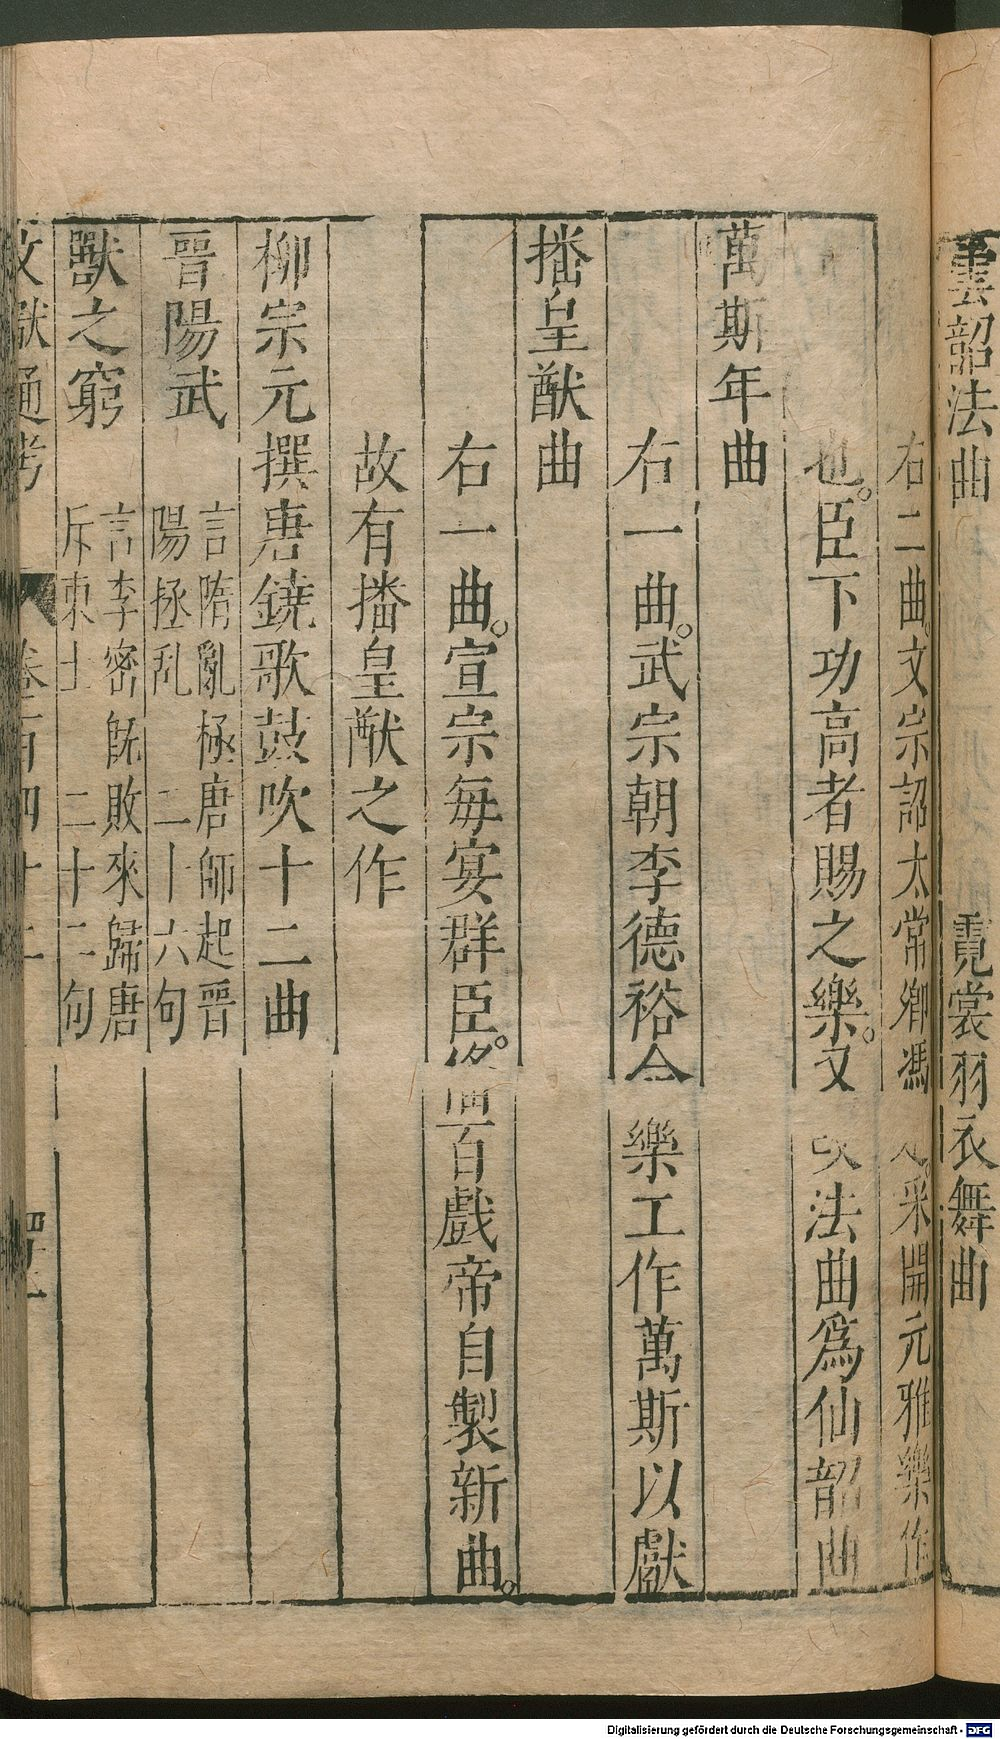 雲韶法曲 霓裳羽衣舞曲
右二曲文宗詔太常卿馮定采開元雅樂作
也臣下功高者賜之樂又改法曲爲仙韶曲
萬斯年曲
右一曲武宗朝李德裕令樂工作萬斯以獻
播皇猷曲
右一曲宣宗每宴群臣備百戲帝自製新曲
故有播皇猷之作
柳宗元撰唐鐃歌鼓吹十二曲
晉陽武 言隋亂極唐師起晉
陽拯乱 二十六句
獸之窮 言李密旣敗來歸唐
斥東土 二十二句
文獻通考 卷一百四十二